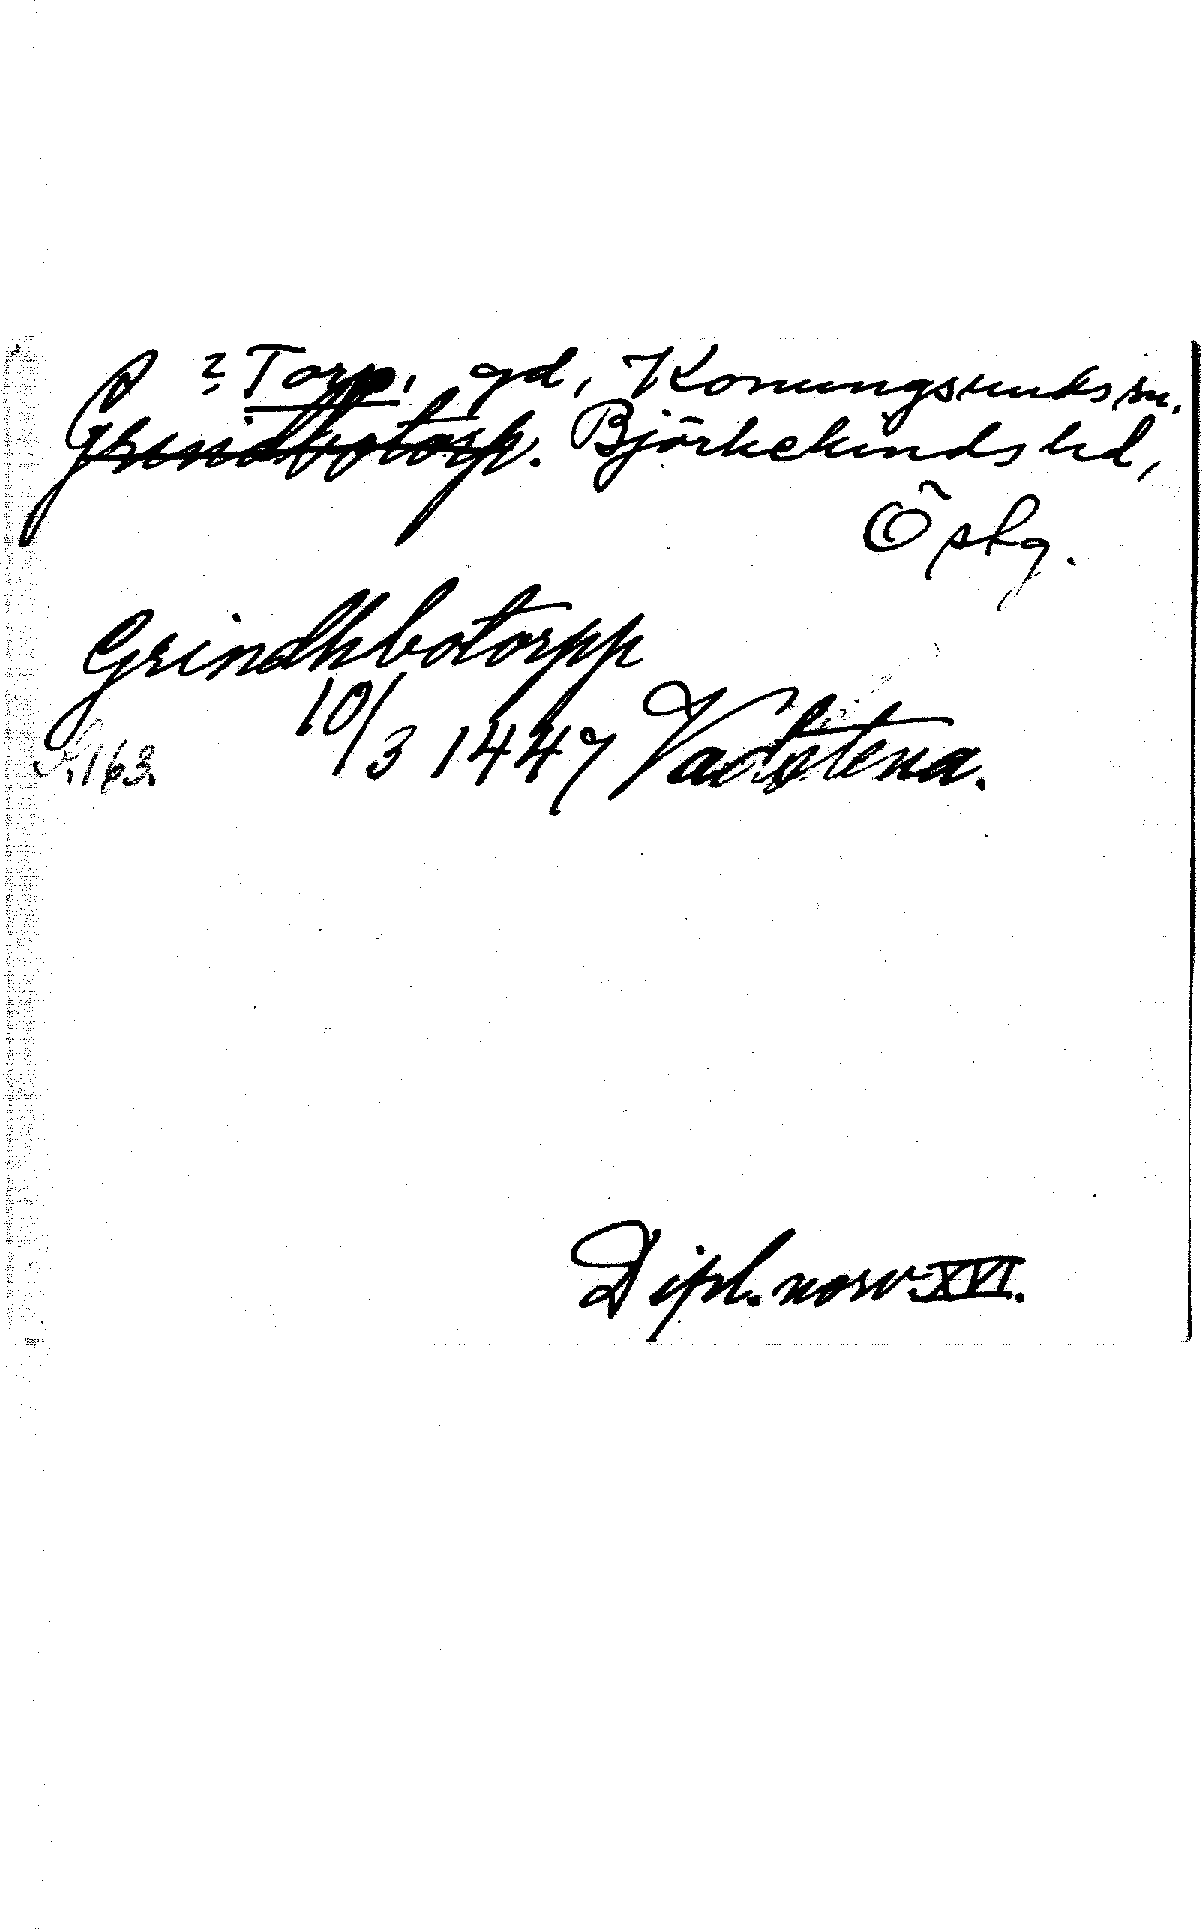 ? Torp. gd, Konungsunds sn.
Grindbotorp. Björkekinds hd,
Östg.
Grindhbotorpp
10/3 1447 Vadstena.
S. 163.
Dipl. norv XVI.